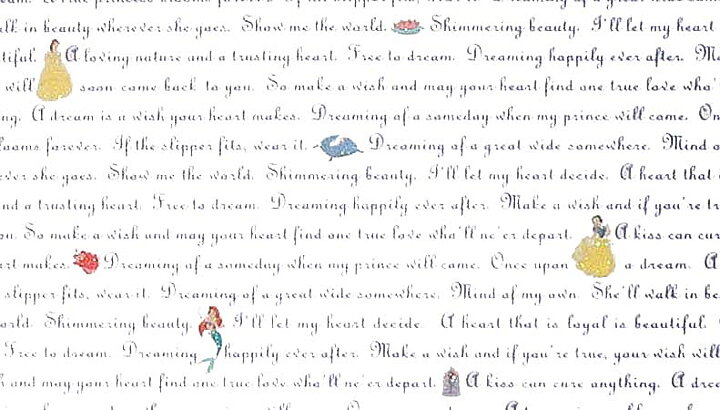 beauty wherever she goes. Show me the world. Shimmering beauty. I'll let my heart
A loving nature and a trusting heart. Free to dream. Dreaming happily ever after.
will soon come back to you. So make a wish and may your heart find one true love who'
A dream is a wish your heart makes. Dreaming of a someday when my prince will come. On
looms forever. If the slipper fits, wear it. Dreaming of a great wide somewhere. Mind o
ever she goes. Show me the world. Shimmering beauty. I'll let my heart decide. A heart that
nd a trusting heart. Free to dream. Dreaming happily ever after. Make a wish and if you're tr
ou. So make a wish and may your heart find one true love who'll ne'er depart. A kiss can cur
rt makes. Dreaming of a someday when my prince will come. Once upon a dream. A
slipper fits, wear it. Dreaming of a great wide somewhere. Mind of my own. She'll walk in be
orld. Shimmering beauty. I'll let my heart decide. A heart that is loyal is beautiful.
Free to dream. Dreaming happily ever after. Make a wish and if you're true, your wish will
h and may your heart find one true love who'll ne'er depart. A kiss can cure anything. A dre